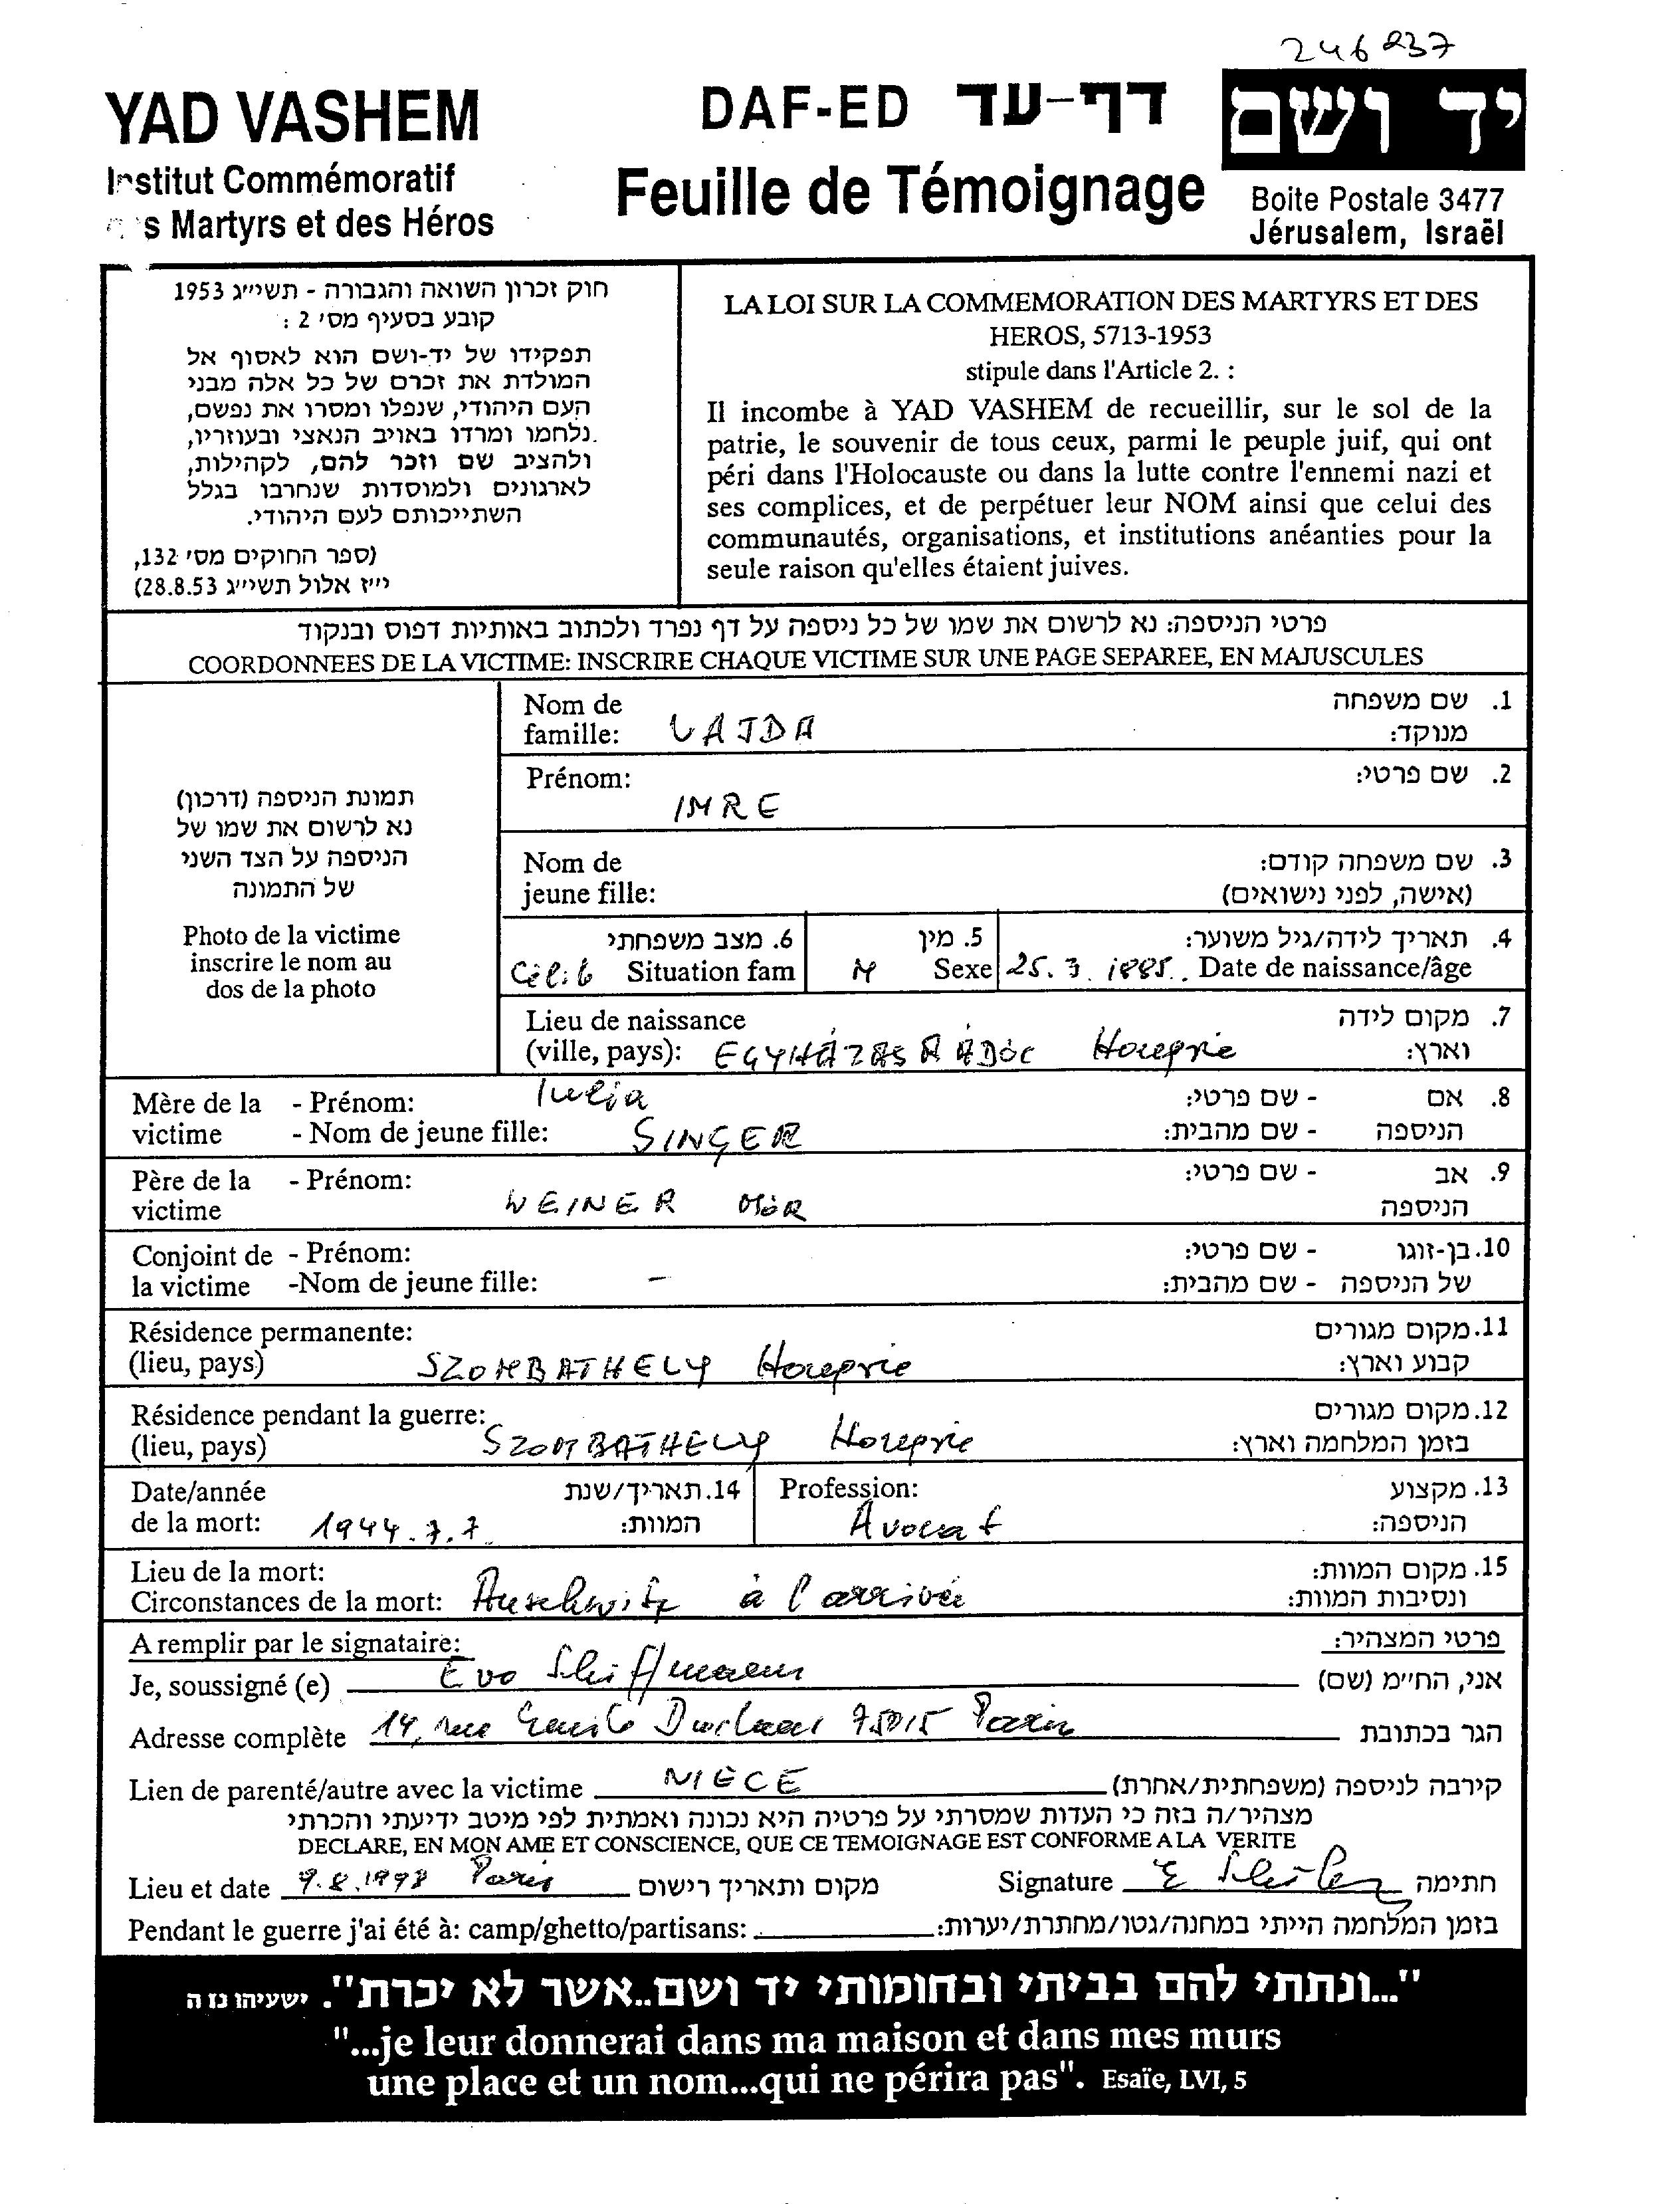 246237
YAD VASHEM
Institut Commémoratif
s Martyrs et des Héros
DAF-ED דף-עד
Feuille de Témoignage
יד ושם
Boite Postale 3477
Jérusalem, Israël
חוק זכרון השואה והגבורה - תשי״ג 1953
קובע בסעיף מס׳ 2 :
תפקידו של יד-ושם הוא לאסוף אל
המולדת את זכרם של כל אלה מבני
העם היהודי, שנפלו ומסרו את נפשם,
נלחמו ומרדו באויב הנאצי ובעוזריו,
ולהציב שם וזכר להם, לקהילות,
לארגונים ולמוסדות שנחרבו בגלל
השתייכותם לעם היהודי.
(ספר החוקים מס׳ 132,
י״ז אלול תשי״ג 28.8.53)
LA LOI SUR LA COMMEMORATION DES MARTYRS ET DES
HEROS, 5713-1953
stipule dans l'Article 2. :
Il incombe à YAD VASHEM de recueillir, sur le sol de la
patrie, le souvenir de tous ceux, parmi le peuple juif, qui ont
péri dans l'Holocauste ou dans la lutte contre l'ennemi nazi et
ses complices, et de perpétuer leur NOM ainsi que celui des
communautés, organisations, et institutions anéanties pour la
seule raison qu'elles étaient juives.
פרטי הניספה: נא לרשום את שמו של כל ניספה על דף נפרד ולכתוב באותיות דפוס ובנקוד
COORDONNEES DE LA VICTIME: INSCRIRE CHAQUE VICTIME SUR UNE PAGE SEPAREE, EN MAJUSCULES
תמונת הניספה (דרכון)
נא לרשום את שמו של
הניספה על הצד השני
של התמונה
Photo de la victime
inscrire le nom au
dos de la photo
Nom de 1. שם משפחה
famille: VAJDA מנוקד:
Prénom: 2. שם פרטי:
IMRE
Nom de 3. שם משפחה קודם:
jeune fille: (אישה, לפני נישואים)
6. מצב משפחתי 5. מין 4. תאריך לידה/גיל משוער:
Célib Situation fam M Sexe 25.3.1885. Date de naissance/âge
Lieu de naissance 7. מקום לידה
(ville, pays): EGYHÁZASRÁDÓC Hongrie וארץ:
Mère de la - Prénom: Iulia - שם פרטי: 8. אם
victime - Nom de jeune fille: SINGER - שם מהבית: הניספה
Père de la - Prénom: - שם פרטי: 9. אב
victime WEINER MÓR הניספה
Conjoint de - Prénom: - שם פרטי: 10. בן-זוגו
la victime -Nom de jeune fille: - - שם מהבית: של הניספה
Résidence permanente: 11. מקום מגורים
(lieu, pays) SZOMBATHELY Hongrie קבוע וארץ:
Résidence pendant la guerre: 12. מקום מגורים
(lieu, pays) SZOMBATHELY Hongrie בזמן המלחמה וארץ:
Date/année 14. תאריך/שנת Profession: 13. מקצוע
de la mort: 1944.7.7. המוות: Avocat הניספה:
Lieu de la mort: 15. מקום המוות:
Circonstances de la mort: Auschwitz à l'arrivée ונסיבות המוות:
A remplir par le signataire: פרטי המצהיר:
Je, soussigné (e) Eva אני, הח״מ (שם)
Adresse complète 14, rue Emile Duclaux 75015 Paris הגר בכתובת
Lien de parenté/autre avec la victime NIÈCE קירבה לניספה (משפחתית/אחרת)
מצהיר/ה בזה כי העדות שמסרתי על פרטיה היא נכונה ואמתית לפי מיטב ידיעתי והכרתי
DECLARE, EN MON AME ET CONSCIENCE, QUE CE TEMOIGNAGE EST CONFORME A LA VERITE
Lieu et date 9.8.1998 Paris מקום ותאריך רישום Signature E חתימה
Pendant le guerre j'ai été à: camp/ghetto/partisans: בזמן המלחמה הייתי במחנה/גטו/מחתרת/יערות:
"...ונתתי להם בביתי ובחומותי יד ושם..אשר לא יכרת". ישעיהו נו ה
"...je leur donnerai dans ma maison et dans mes murs
une place et un nom...qui ne périra pas". Esaïe, LVI, 5